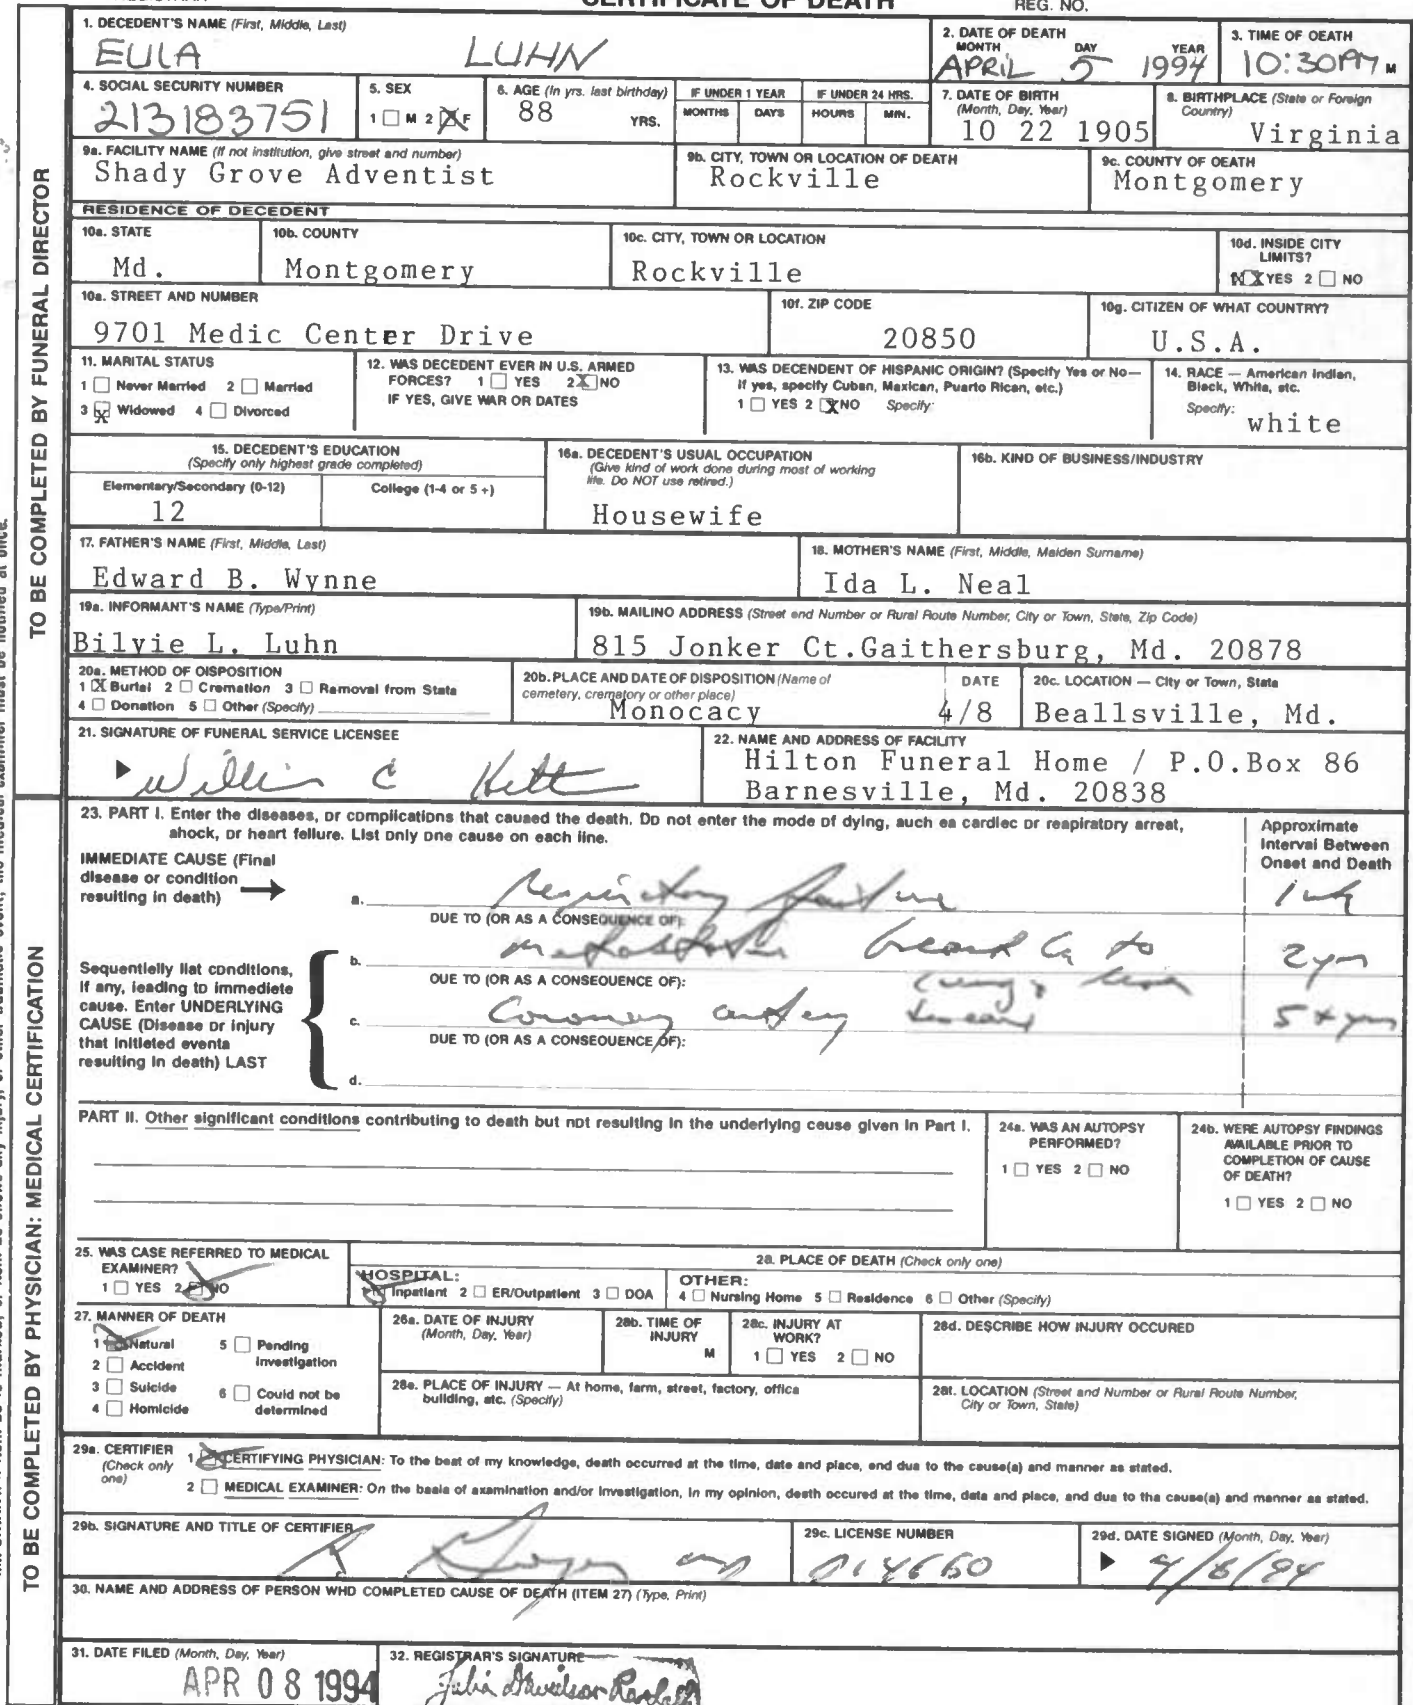 CERTIFICATE OF DEATH
REG. NO.
TO BE COMPLETED BY FUNERAL DIRECTOR
1. DECEDENT'S NAME (First, Middle, Last)
EULA LUHN
2. DATE OF DEATH
MONTH DAY YEAR
APRIL 5 1994
3. TIME OF DEATH
10:30PM M
4. SOCIAL SECURITY NUMBER
213183751
5. SEX
1 M 2 X F
6. AGE (In yrs. last birthday)
88 YRS.
IF UNDER 1 YEAR
MONTHS DAYS
IF UNDER 24 HRS.
HOURS MIN.
7. DATE OF BIRTH
(Month, Day, Year)
10 22 1905
8. BIRTHPLACE (State or Foreign
Country)
Virginia
9a. FACILITY NAME (If not institution, give street and number)
Shady Grove Adventist
9b. CITY, TOWN OR LOCATION OF DEATH
Rockville
9c. COUNTY OF DEATH
Montgomery
RESIDENCE OF DECEDENT
10a. STATE
Md.
10b. COUNTY
Montgomery
10c. CITY, TOWN OR LOCATION
Rockville
10d. INSIDE CITY
LIMITS?
X YES 2 NO
10e. STREET AND NUMBER
9701 Medic Center Drive
10f. ZIP CODE
20850
10g. CITIZEN OF WHAT COUNTRY?
U.S.A.
11. MARITAL STATUS
1 Never Married 2 Married
3 X Widowed 4 Divorced
12. WAS DECEDENT EVER IN U.S. ARMED
FORCES? 1 YES 2 X NO
IF YES, GIVE WAR OR DATES
13. WAS DECENDENT OF HISPANIC ORIGIN? (Specify Yes or No—
If yes, specify Cuban, Mexican, Puerto Rican, etc.)
1 YES 2 X NO Specify:
14. RACE — American Indian,
Black, White, etc.
Specify:
white
15. DECEDENT'S EDUCATION
(Specify only highest grade completed)
Elementary/Secondary (0-12) College (1-4 or 5 +)
12
16a. DECEDENT'S USUAL OCCUPATION
(Give kind of work done during most of working
life. Do NOT use retired.)
Housewife
16b. KIND OF BUSINESS/INDUSTRY
17. FATHER'S NAME (First, Middle, Last)
Edward B. Wynne
18. MOTHER'S NAME (First, Middle, Maiden Surname)
Ida L. Neal
19a. INFORMANT'S NAME (Type/Print)
Bilyie L. Luhn
19b. MAILING ADDRESS (Street and Number or Rural Route Number, City or Town, State, Zip Code)
815 Jonker Ct.Gaithersburg, Md. 20878
20a. METHOD OF DISPOSITION
1 X Burial 2 Cremation 3 Removal from State
4 Donation 5 Other (Specify)
20b. PLACE AND DATE OF DISPOSITION (Name of
cemetery, crematory or other place)
Monocacy
DATE
4/8
20c. LOCATION — City or Town, State
Beallsville, Md.
21. SIGNATURE OF FUNERAL SERVICE LICENSEE
22. NAME AND ADDRESS OF FACILITY
Hilton Funeral Home / P.O.Box 86
Barnesville, Md. 20838
TO BE COMPLETED BY PHYSICIAN: MEDICAL CERTIFICATION
23. PART I. Enter the diseases, or complications that caused the death. Do not enter the mode of dying, such as cardiac or respiratory arrest,
shock, or heart failure. List only one cause on each line.
Approximate
Interval Between
Onset and Death
IMMEDIATE CAUSE (Final
disease or condition
resulting in death)
a. respiratory failure 1 wk
DUE TO (OR AS A CONSEQUENCE OF):
Sequentially list conditions,
if any, leading to immediate
cause. Enter UNDERLYING
CAUSE (Disease or injury
that initiated events
resulting in death) LAST
b. metastatic breast Ca to 2 yrs
DUE TO (OR AS A CONSEQUENCE OF):
c. Coronary artery disease 5 + yrs
DUE TO (OR AS A CONSEQUENCE OF):
d.
PART II. Other significant conditions contributing to death but not resulting in the underlying cause given in Part I.
24a. WAS AN AUTOPSY
PERFORMED?
1 YES 2 NO
24b. WERE AUTOPSY FINDINGS
AVAILABLE PRIOR TO
COMPLETION OF CAUSE
OF DEATH?
1 YES 2 NO
25. WAS CASE REFERRED TO MEDICAL
EXAMINER?
1 YES 2 NO
26. PLACE OF DEATH (Check only one)
HOSPITAL:
1 Inpatient 2 ER/Outpatient 3 DOA
OTHER:
4 Nursing Home 5 Residence 6 Other (Specify)
27. MANNER OF DEATH
1 Natural 5 Pending
Investigation
2 Accident
3 Suicide 6 Could not be
determined
4 Homicide
28a. DATE OF INJURY
(Month, Day, Year)
28b. TIME OF
INJURY
M
28c. INJURY AT
WORK?
1 YES 2 NO
28d. DESCRIBE HOW INJURY OCCURED
28e. PLACE OF INJURY — At home, farm, street, factory, office
building, etc. (Specify)
28f. LOCATION (Street and Number or Rural Route Number,
City or Town, State)
29a. CERTIFIER
(Check only
one)
1 CERTIFYING PHYSICIAN: To the best of my knowledge, death occurred at the time, date and place, and due to the cause(s) and manner as stated.
2 MEDICAL EXAMINER: On the basis of examination and/or investigation, in my opinion, death occured at the time, date and place, and due to the cause(s) and manner as stated.
29b. SIGNATURE AND TITLE OF CERTIFIER
29c. LICENSE NUMBER
29d. DATE SIGNED (Month, Day, Year)
30. NAME AND ADDRESS OF PERSON WHO COMPLETED CAUSE OF DEATH (ITEM 27) (Type, Print)
31. DATE FILED (Month, Day, Year)
APR 08 1994
32. REGISTRAR'S SIGNATURE